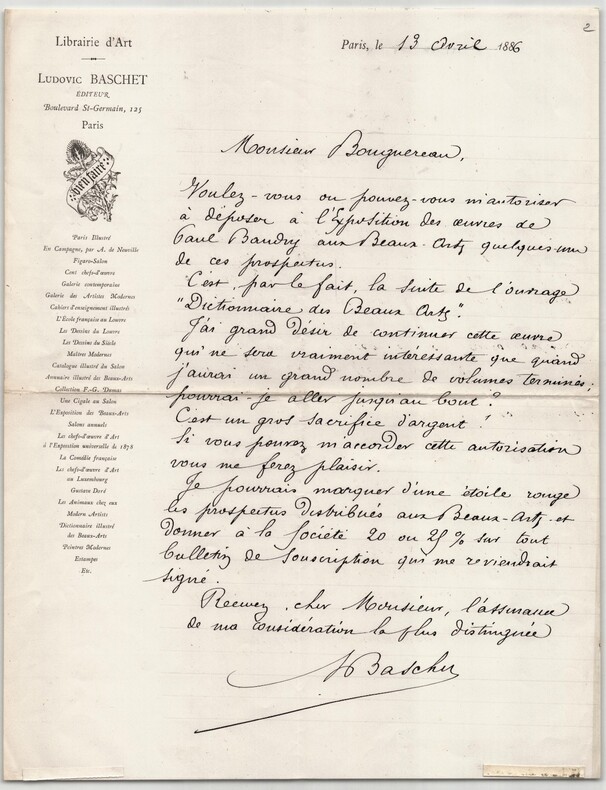 2
Librairie d'Art
LUDOVIC BASCHET
ÉDITEUR
Boulevard St-Germain, 125
Paris
bien faire
Paris Illustré
En Campagne, par A. de Neuville
Figaro-Salon
Cent chefs-d'œuvre
Galerie contemporaine
Galerie des Artistes Modernes
Cahiers d'enseignement illustrés
L'École française au Louvre
Les Dessins du Louvre
Les Dessins du Siècle
Maîtres Modernes
Catalogue illustré du Salon
Annuaire illustré des Beaux-Arts
Collection F.-G. Dumas
Une Cigale au Salon
L'Exposition des Beaux-Arts
Salons annuels
Les chefs-d'œuvre d'Art
à l'Exposition universelle de 1878
La Comédie française
Les chefs-d'œuvre d'Art
au Luxembourg
Gustave Doré
Les Animaux chez eux
Modern Artists
Dictionnaire illustré
des Beaux-Arts
Peintres Modernes
Estampes
Etc.
Paris, le 13 Avril 1886
Monsieur Bouguereau,
Voulez-vous ou pouvez-vous m'autoriser
à déposer à l'Exposition des œuvres de
Paul Baudry aux Beaux-Arts quelques-uns
de ces prospectus.
C'est, par le fait, la suite de l'ouvrage
"Dictionnaire des Beaux Arts".
J'ai grand désir de continuer cette œuvre
qui ne sera vraiment intéressante que quand
j'aurai un grand nombre de volumes terminés;
pourrai-je aller jusqu'au bout?
C'est un gros sacrifice d'argent!
Si vous pouvez m'accorder cette autorisation
vous me ferez plaisir.
Je pourrais marquer d'une étoile rouge
les prospectus distribués aux Beaux-Arts et
donner à la Société 20 ou 25 % sur tout
bulletin de souscription qui me reviendrait
signé.
Recevez, cher Monsieur, l'assurance
de ma considération la plus distinguée
LBaschet